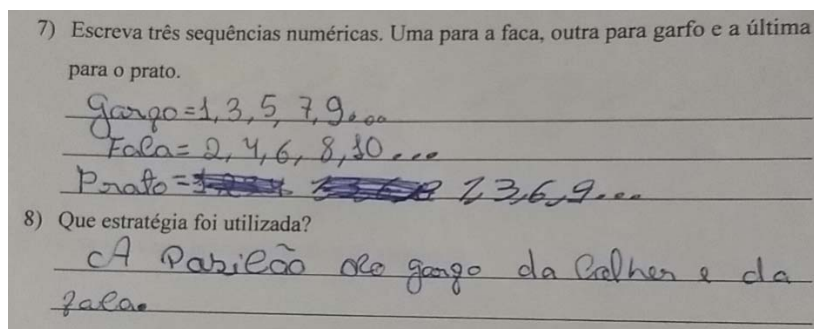 7) Escreva três sequências numéricas. Uma para a faca, outra para garfo e a última
para o prato.
Garfo=1, 3, 5, 7, 9...
Faca= 2, 4, 6, 8, 10...
Prato= 1,3,6,9...
8) Que estratégia foi utilizada?
A Posição do garfo da Colher e da
faca.